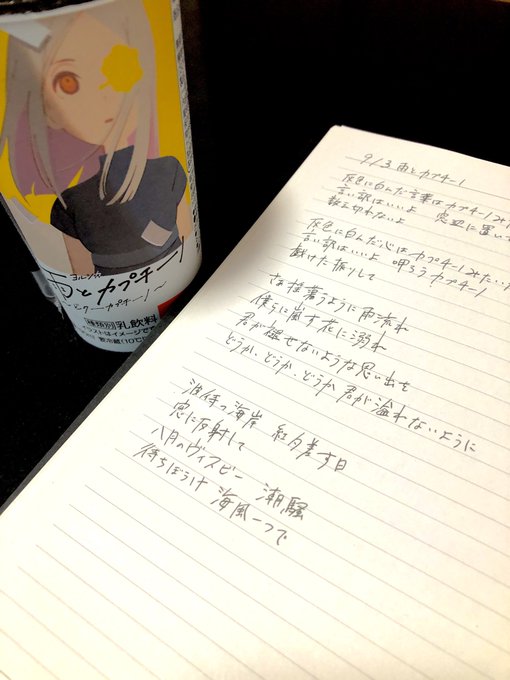 ヨルシカ
雨とカプチーノ
種類別 乳飲料
イラストはイメージです
要冷蔵(10℃
9/3 雨とカプチーノ
灰色に白んだ言葉はカプチーノみ
言い訳はいいよ 窓辺に置いて
数え切れないよ
灰色に白んだ心はカプチーノみたいな
言い訳はいいよ 呷ろうカプチーノ
戯けた振りして
さぁ揺蕩うように雨流れ
僕らに嵐す花に溺れ
君が褪せないような思い出を
どうか、どうか、どうか君が溢れないように
誰待つ海岸 紅夕差す日
窓に反射して
八月のヴィスビー 潮騒
待ちぼうけ 海風一つで